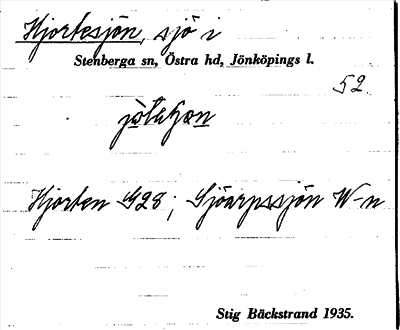 Hjortesjön, sjö i
Stenberga sn, Östra hd, Jönköpings l.
52.
Hjorten G28; Sjöarpssjön W-n
Stig Bäckstrand 1935.